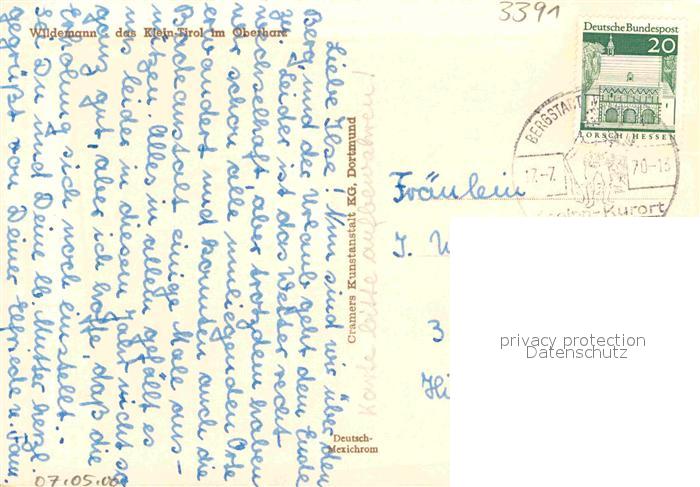 3391
Wildemann das Klein-Tirol im Oberharz
Deutsche Bundespost
20
LORSCH / HESSEN
BERGSTADT
17.-7. 70-13
Kneipp-Kurort
Liebe Ilse! Nun sind wir über den
Berg, und der Urlaub geht dem Ende
zu. Leider ist das Wetter recht
wechselhaft, aber trotzdem haben
wir schon alle umliegenden Orte
erwandert und konnten auch die
Badeanstalt einige Male aus-
nützen. Alles in allem gefällt es
uns leider in diesem Jahr nicht so
ganz gut, aber ich hoffe, daß die
Erholung sich noch einstellt. -
Sei Du und Deine lb. Mutter herzl.
gegrüßt von Deiner Elfriede u. Fam.
Cramers Kunstanstalt KG, Dortmund
Karte bitte aufbewahren!
Fräulein
I. W
3
Hi
privacy protection
Datenschutz
Deutsch-
Mexichrom
07.05.00